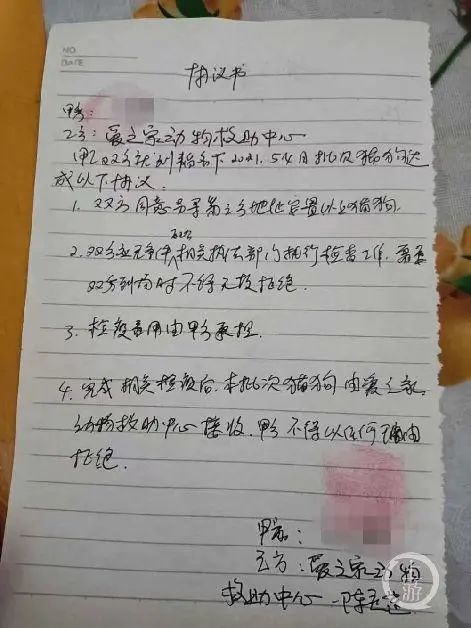 NO.
DATE
协议书
甲方:
乙方:爱之家动物救助中心
甲乙双方就刘裕名下2021.5.4日批次猫狗达
成以下协议.
1. 双方同意另寻第三方地址安置以上猫狗.
2. 双方应无条件配合相关执法部门执行检查工作, 需要
双方到场时不得无故拒绝.
3. 检疫费用由甲方承担.
4. 完成相关检疫后.本批次猫狗由爱之家
动物救助中心接收.甲方不得以任何理由
拒绝.
甲方:
乙方:爱之家动物
救助中心